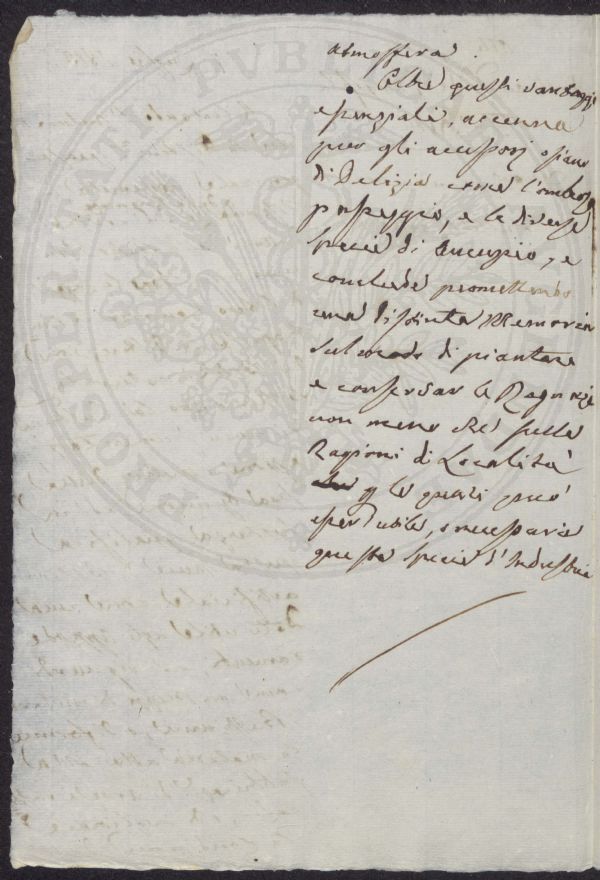 atmosfera.
Oltre questi vantaggi
essenziali, accenna
pur gli accessorj o siano
di Delizia come l'ombroso
passeggio, e le diverse
specie di Aucupio, e
conclude promettendo
una distinta Memoria
sul modo di piantare
e conservar le Ragnaje
non meno che sulle
Ragioni di Località
p le quali può
esser utile, o necessaria
questa specie d'Industria
PROSPERITATI PVBL